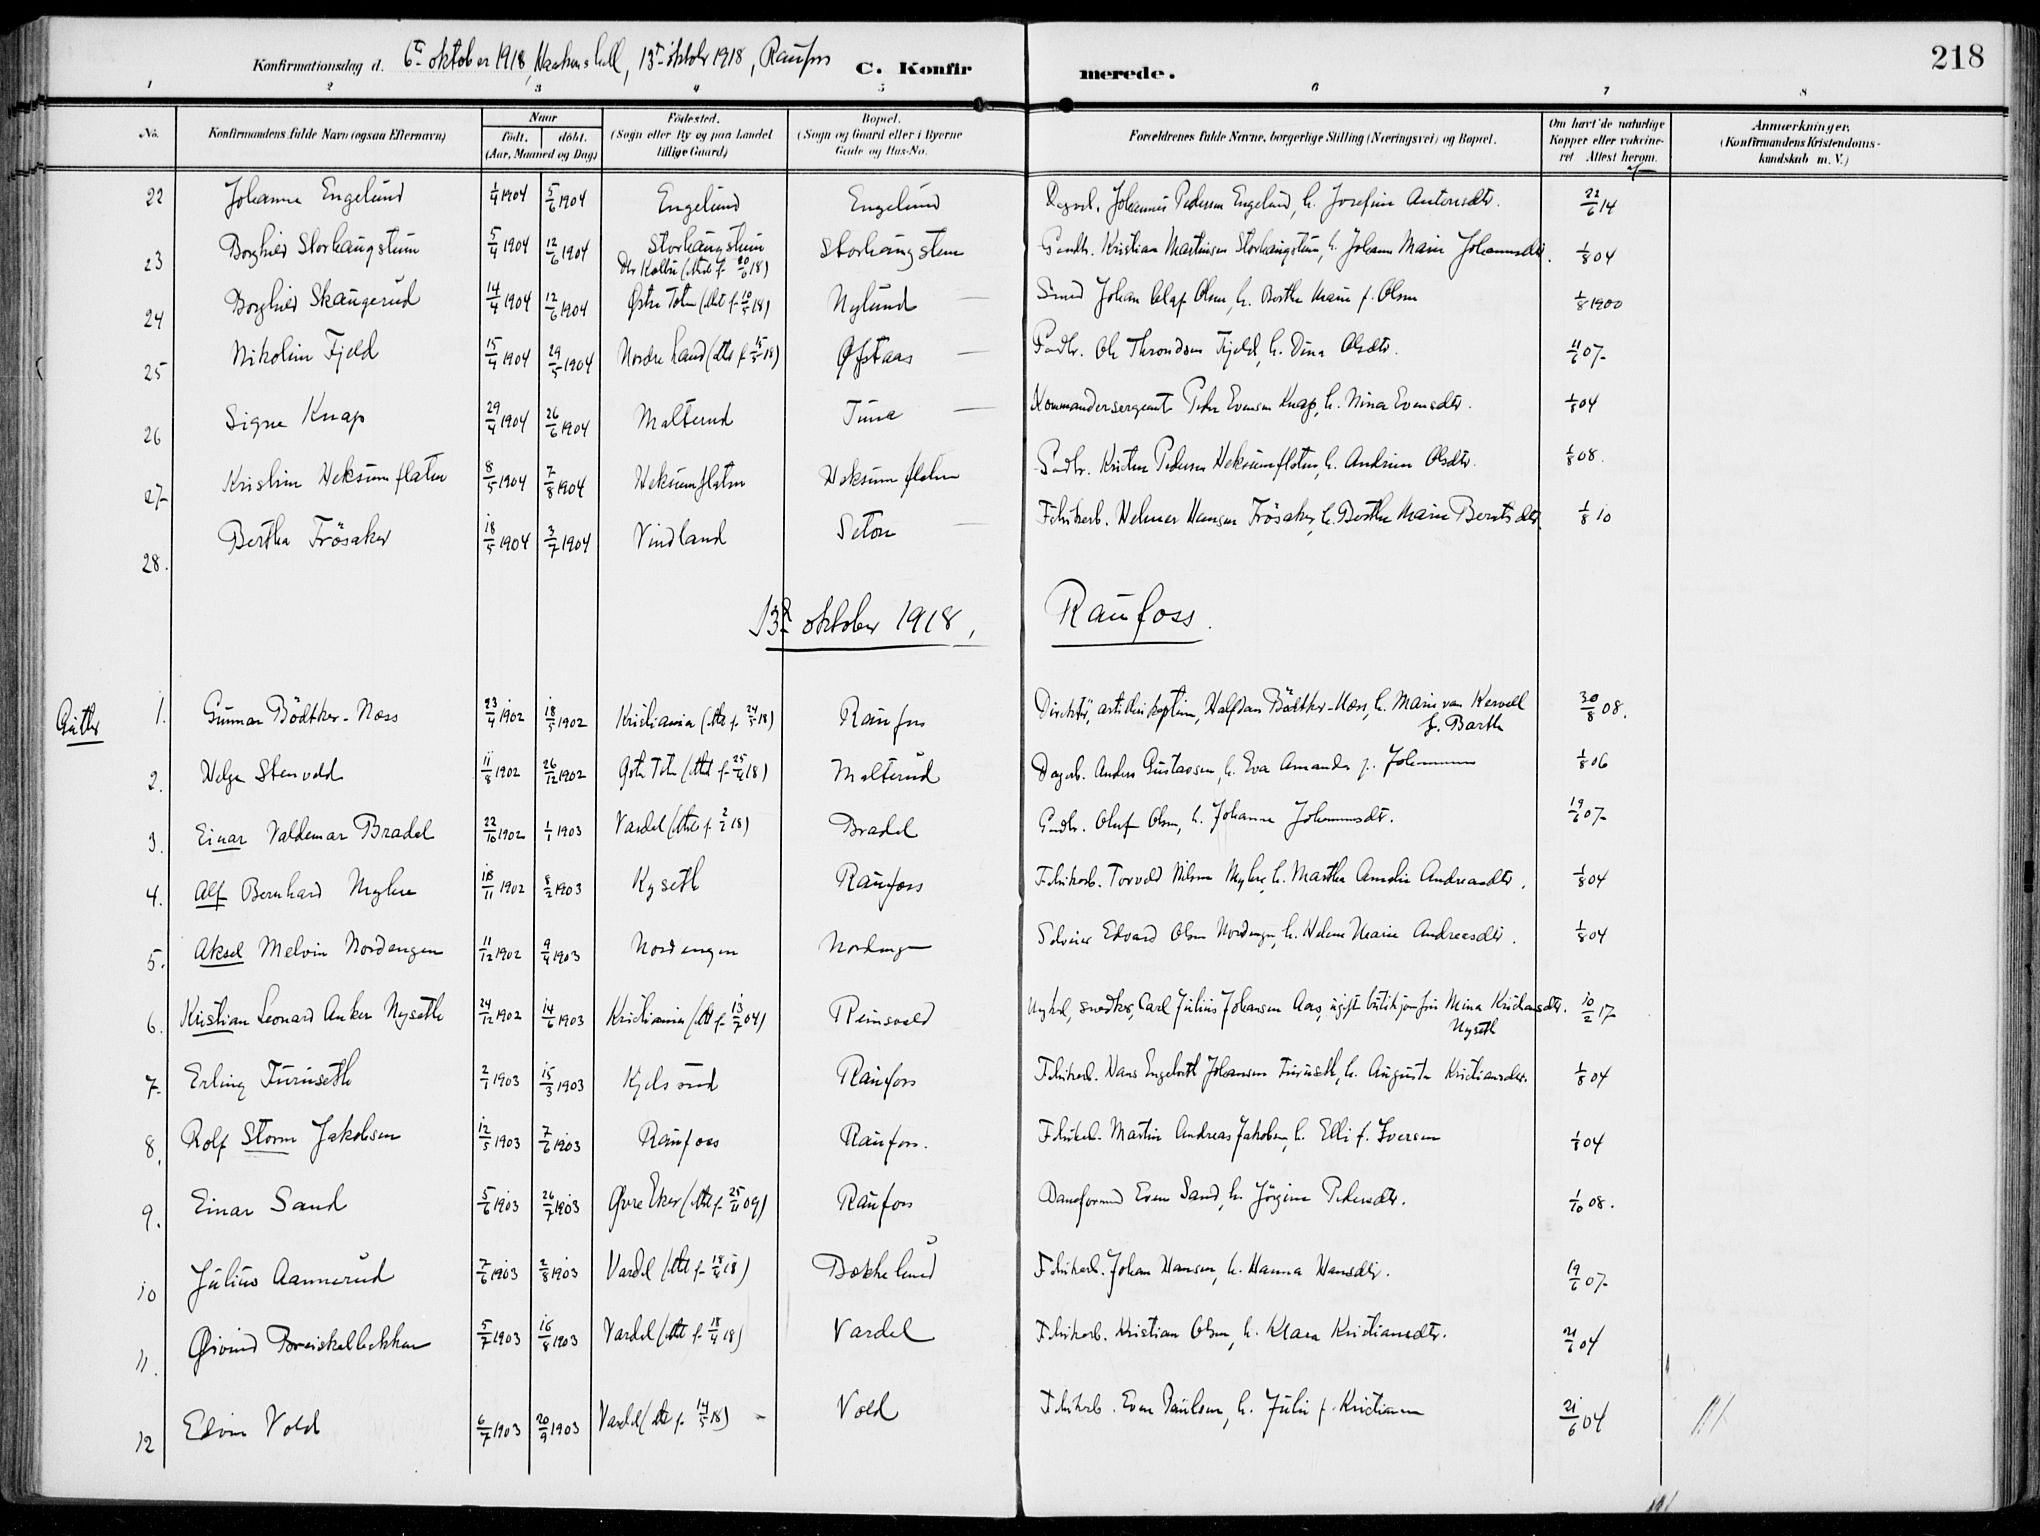 218
Konfirmationsdag d. 6te oktober 1918, 13de oktober 1918, Raufoss
C. Konfir merede.
1 2 3 4 5 6 7 8
No. Konfirmandens fulde Navn (ogsaa Efternavn) Naar født. døbt. (Aar, Maaned og Dag) Fødested. (Sogn eller By og paa Landet tillige Gaard) Bopæl. (Sogn og Gaard eller i Byerne Gade og Hus-No. Forældrenes fulde Navne, borgerlige Stilling (Næringsvei) og Bopæl. Om havt de naturlige Kopper eller vaksineret Attest herom. Anmærkninger. (Konfirmandens Kristendomskundskab m. V.)
22 Johanne Engelund 1/4 1904 5/6 1904 Engelund Engelund Johannes Pedersen Engelund, h. Josefine Antonsdtr. 22/6 14
23 Borghild Storhaugstuen 5/4 1904 12/6 1904 Storhaugstuen Vtr Kolbu (Att f. 20/6 18) Storhaugstuen Gaardbr. Kristian Martinsen Storhaugstuen, h. Johanne Marie Johannesdtr. 1/8 04
24 Borghild Skaugerud 14/4 1904 12/6 1904 Østre Toten (Att f. 10/5 18) Nylund — Smed Johan Olaf Olsen, h. Berthe Marie f. Olsen 1/8 1900
25 Nikoline Fjeld 15/4 1904 29/5 1904 Nordre Land (Att f. 15/5 18) Øfstaas — Gaardbr. Ole Throndsen Fjeld, h. Dina Olsdtr. 11/6 07
26 Signe Knap 29/4 1904 26/6 1904 Malterud Tune — Kommandersergeant Peder Evensen Knap, h. Nina Evensdtr. 1/8 04
27 Kristine Heksumflaten 8/5 1904 7/8 1904 Heksumflaten Heksumflaten Gaardbr. Kristen Pedersen Heksumflaten, h. Andrine Olsdtr. 1/8 08.
28. Bertha Frösaker 18/5 1904 3/7 1904 Vindland Seton — Fabrikarb. Helmer Hansen Frösaker, h. Berthe Marie Berntsdtr. 1/8 10
13de oktober 1918, Raufoss.
Gutter
1. Gunnar Bödtker-Næss 23/4 1902 18/5 1902 Kristiania (Att f. 24/5 18) Raufoss Direktör, artillerikaptein, Halfdan Bödtker-Næss, h. Marie van Kervell f. Barth 30/8 08.
2. Helge Stenvold 11/8 1902 26/12 1902 Østre Toten (Att f. 25/4 18) Malterud Dagarb. Anders Gustavsen, h. Eva Amanda f. Johannesen 1/8 06
3. Einar Valdemar Bradel 22/10 1902 1/1 1903 Vardal (Att f. 2/2 18) Bradel Gaardbr. Oluf Olsen, h. Johanne Johannesdtr. 19/6 07
4. Alf Bernhard Myhre 18/11 1902 8/2 1903 Kyseth Raufoss Fabrikarb. Torvald Nilsen Myhre, h. Marthe Amalie Andreasdtr. 1/8 04
5. Aksel Melvin Nordengen 11/12 1902 9/4 1903 Nordengen Nordengen Selveier Edvard Olsen Nordengen, h. Helene Marie Andreasdtr. 1/8 04
6. Kristian Leonard Anker Nyseth 24/12 1902 14/6 1903 Kristiania (Att f. 13/7 04) Reinsvold Ungkarl, snedker, Carl Julius Johansen Aas, ugift butikjomfru Mina Kristiansdtr. Nyseth 10/2 17
7. Erling Furuseth 2/1 1903 15/3 1903 Kjelsrud Raufoss Fabrikarb. Hans Engebreth Johansen Furuseth, h. Augusta Kristiansdtr. 1/8 04
8. Rolf Storm Jakobsen 12/5 1903 7/6 1903 Raufoss Raufoss. Fabrikarb. Martin Andreas Jakobsen, h. Elli f. Iversen 1/8 04
9. Einar Sand 5/6 1903 26/7 1903 Øvre Eker (Att f. 25/11 09) Raufoss Even Sand, h. Jörgine Pedersdtr. 1/10 08.
10 Julius Aannerud 7/6 1903 2/8 1903 Vardal (Att f. 18/4 18) Bækkelund Fabrikarb. Johan Hansen, h. Hanna Hansdtr. 19/6 07
11. Øivind Breiskalbekken 5/7 1903 16/8 1903 Vardal (Att f. 18/4 18) Vardal Fabrikarb. Kristian Olsen, h. Klara Kristiansdtr. 21/6 04
12 Edvin Vold 6/7 1903 20/9 1903 Vardal (Att f. 14/5 18) Vold Fabrikarb. Even Paulsen, h. Julie f. Kristiansen 21/6 04